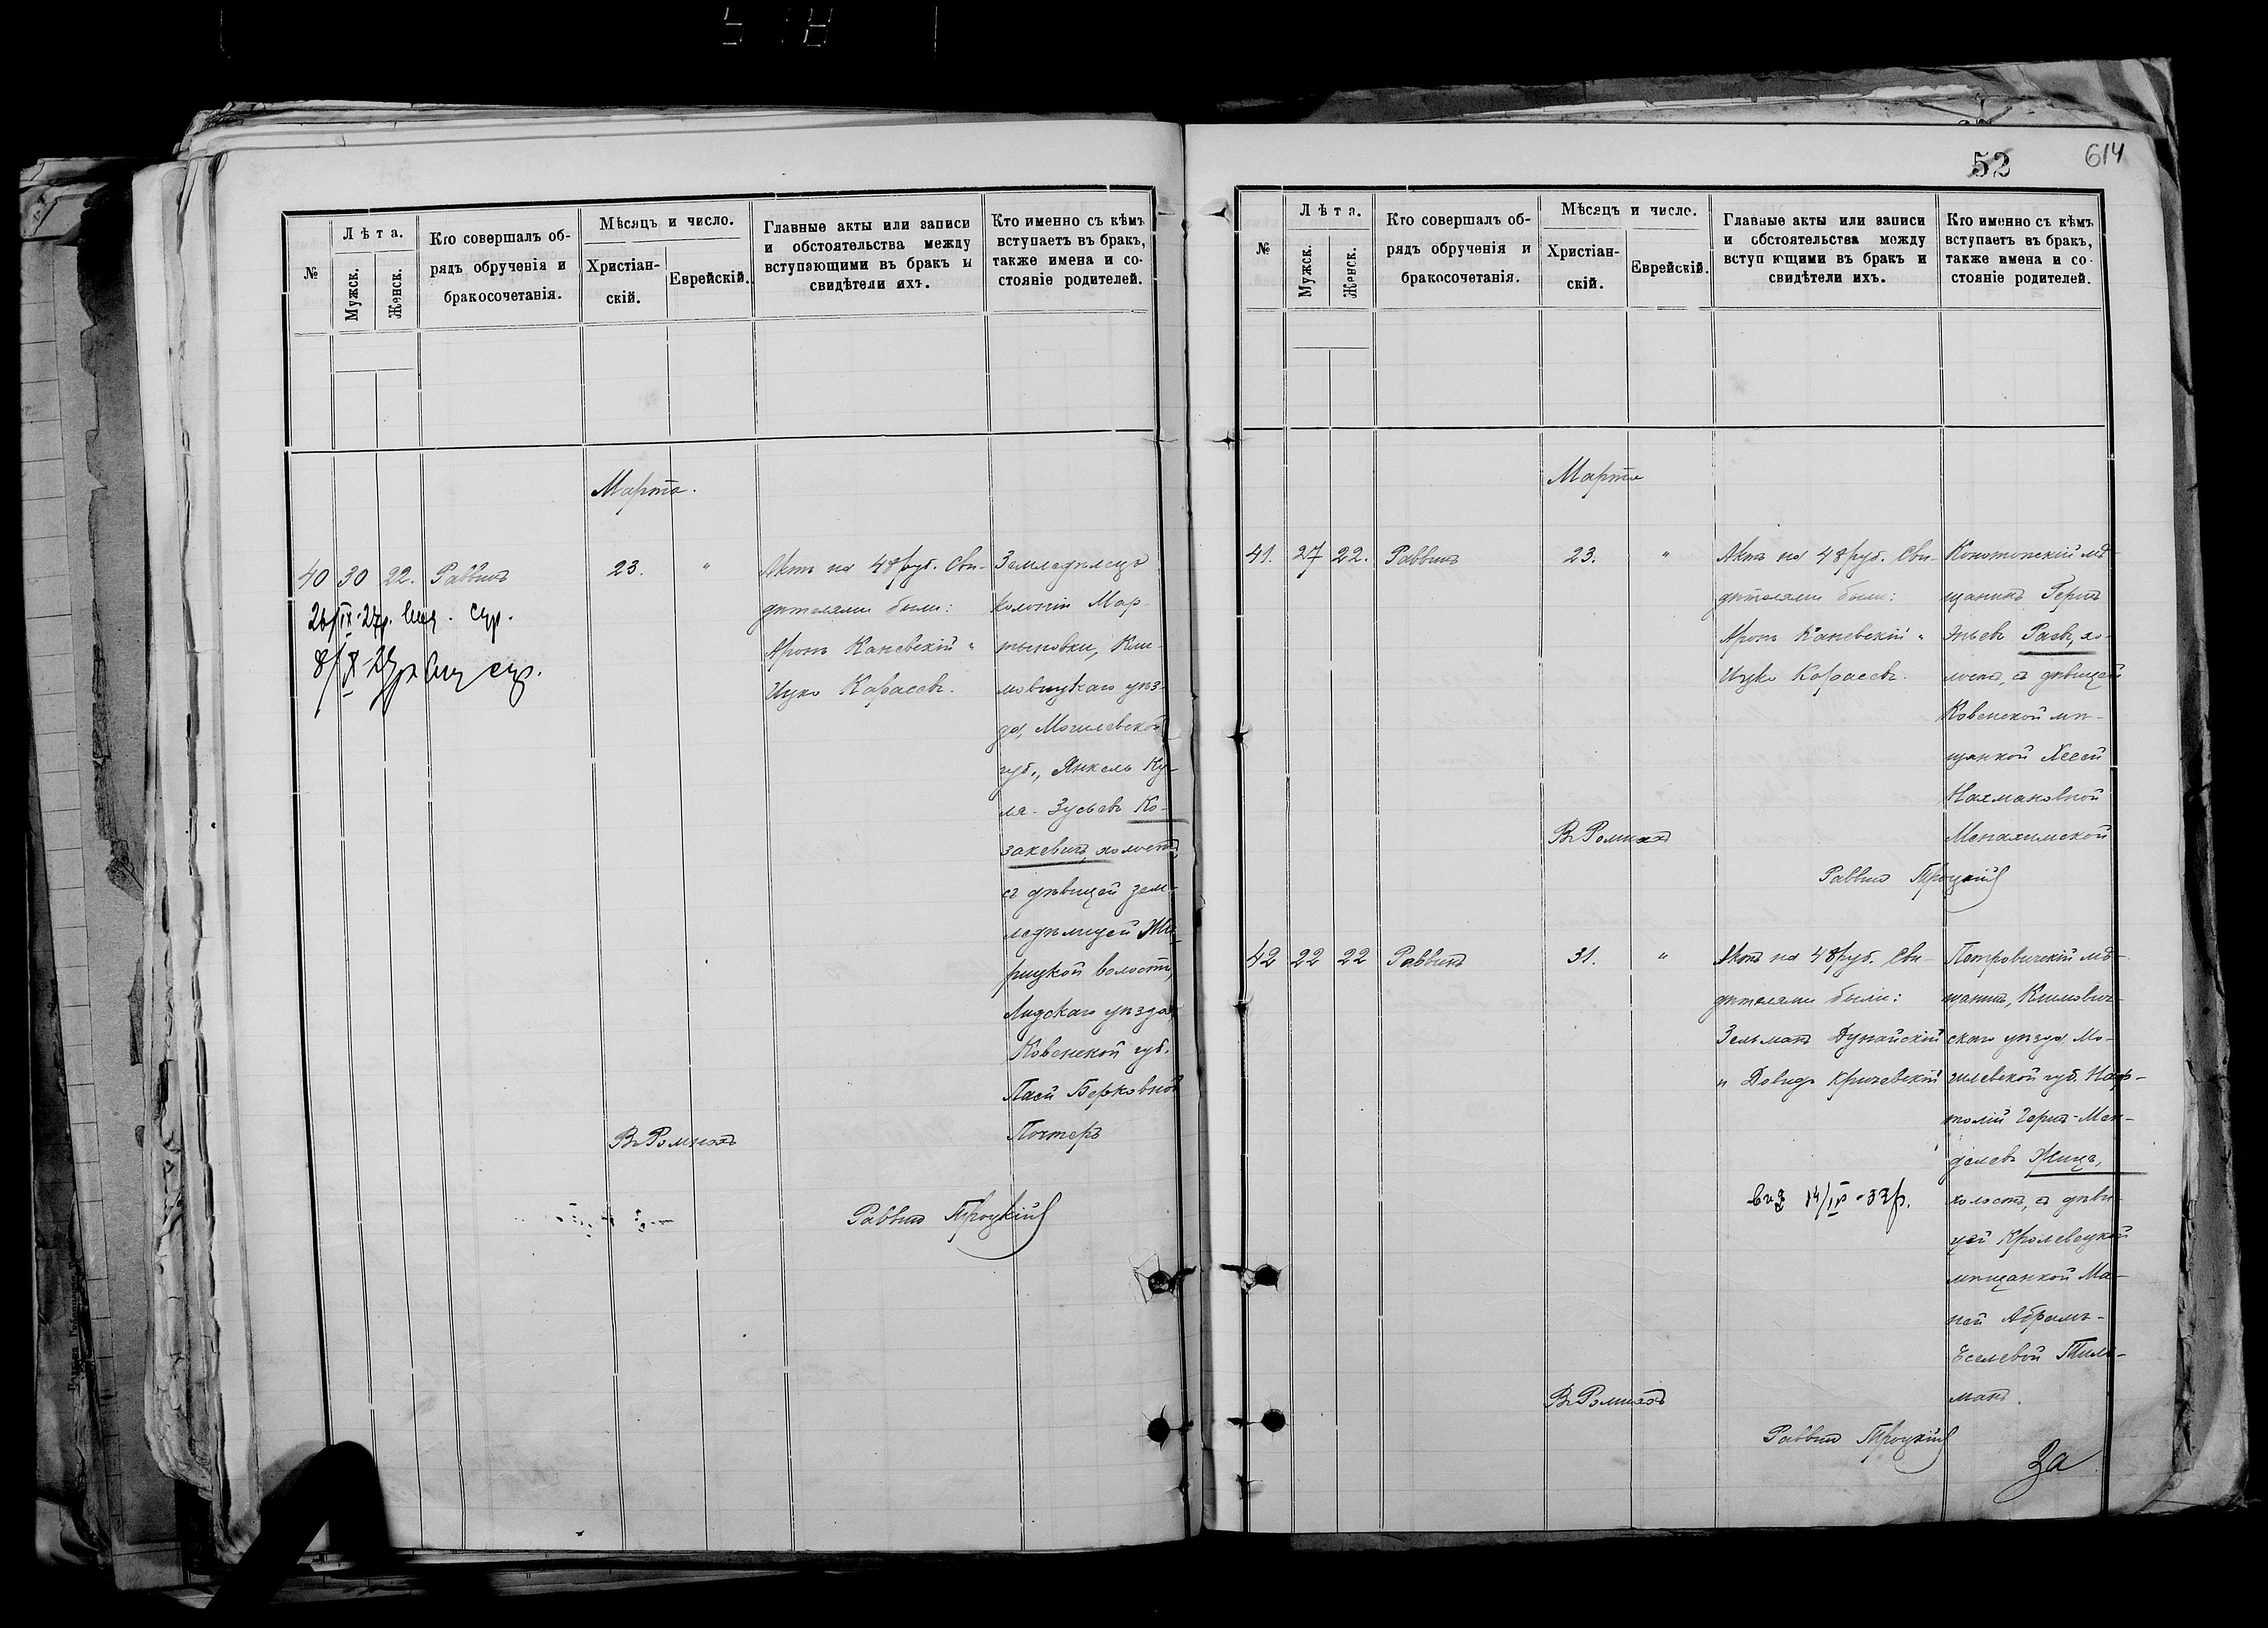 52
614
№
Лѣта.
Мужск.
Женск.
Кто совершалъ об-
рядъ обрученія и
бракосочетанія.
Мѣсяцъ и число.
Христіан-
скій.
Еврейскій.
Главные акты или записи
и обстоятельства между
вступающими въ бракъ и
свидѣтели ихъ.
Кто именно съ кѣмъ
вступаетъ въ бракъ,
также имена и со-
стояніе родителей.
Марта.
40 30 22. Раввинъ 23. "
Актъ на 48 руб. Сви-
дѣтелями были:
Аронъ Каневскій "
Ицко Карасевъ.
Земледѣлецъ
колоніи Мар-
тыновки, Кли-
мовицкаго уѣз-
да, Могилевской
губ., Янкель Ку-
ля-Зусьевъ Ко-
закевичъ, холостъ,
съ дѣвицей зем-
ледѣлицей
рицкой волости,
Лидскаго уѣзда,
Ковенской губ.
Пасей Берковной
Почтеръ
Въ Ромнахъ
Раввинъ Троцкій
№
Лѣта.
Мужск.
Женск.
Кто совершалъ об-
рядъ обрученія и
бракосочетанія.
Мѣсяцъ и число.
Христіан-
скій.
Еврейскій.
Главные акты или записи
и обстоятельства между
вступ ющими въ бракъ и
свидѣтели ихъ.
Кто именно съ кѣмъ
вступаетъ въ бракъ,
также имена и со-
стояніе родителей.
Марта
41. 27 22. Раввинъ 23. "
Актъ на 48 руб. Сви-
дѣтелями были:
Аронъ Каневскій "
Ицко Карасевъ.
Конотопскій мѣ-
щанинъ Герцъ
Раевъ, хо-
лостъ, съ дѣвицей
Ковенской мѣ-
щанкой Хесей
Нахмановной
Менахимской
Въ Ромнахъ
Раввинъ Троцкій
42 22 22 Раввинъ 31. "
Актъ на 48 руб. Сви-
дѣтелями были:
Зельманъ Дунайскій
" Довидъ Кричевскій
Петровичскій мѣ-
щанинъ, Климович-
скаго уѣзда Мо-
гилевской губ. Наф-
толій Герцъ-Мен-
делевъ
холостъ, съ дѣви-
цей Кролевецкой
мѣщанкой Ма-
ней Абрамъ-
Еселевой Тиль-
манъ.
14/IV-33г.
Въ Ромнахъ
Раввинъ Троцкій
За